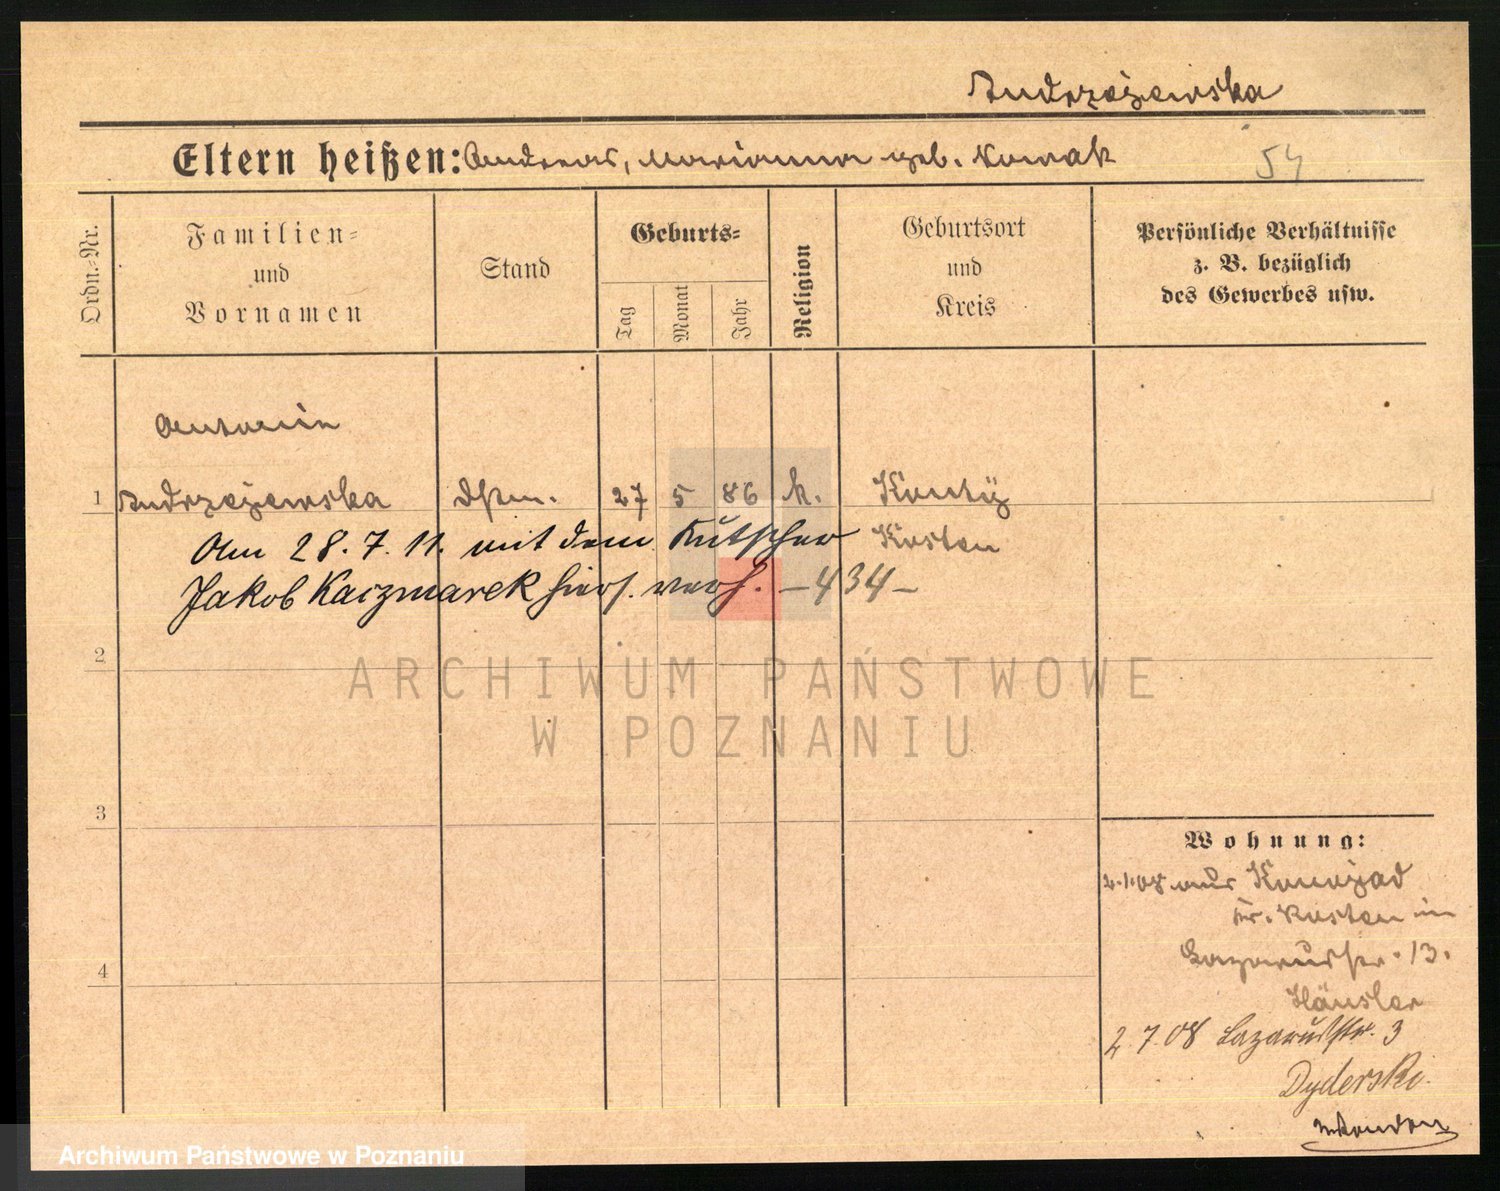 Andrzejewska
Eltern heißen: Andreas, Marianna geb. Nowak
54
Ordn.-Nr.
Familien-
und
Vornamen
Stand
Geburts-
Tag
Monat
Jahr
Religion
Geburtsort
und
Kreis
Persönliche Verhältnisse
z. B. bezüglich
des Gewerbes usw.
Antonie
1 Andrzejewska 27 5 86 k.
Am 28.7.11. mit dem Kutscher Kosten
Jakob Kaczmarek hiers. verh. – 434 –
2
ARCHIWUM PAŃSTWOWE
W POZNANIU
3
4
Wohnung:
2.1.08 aus
Kr. Kosten in
Lazarusstr. 13.
Häusler
2.7.08 Lazarusstr. 3
Dyderski.
Archiwum Państwowe w Poznaniu